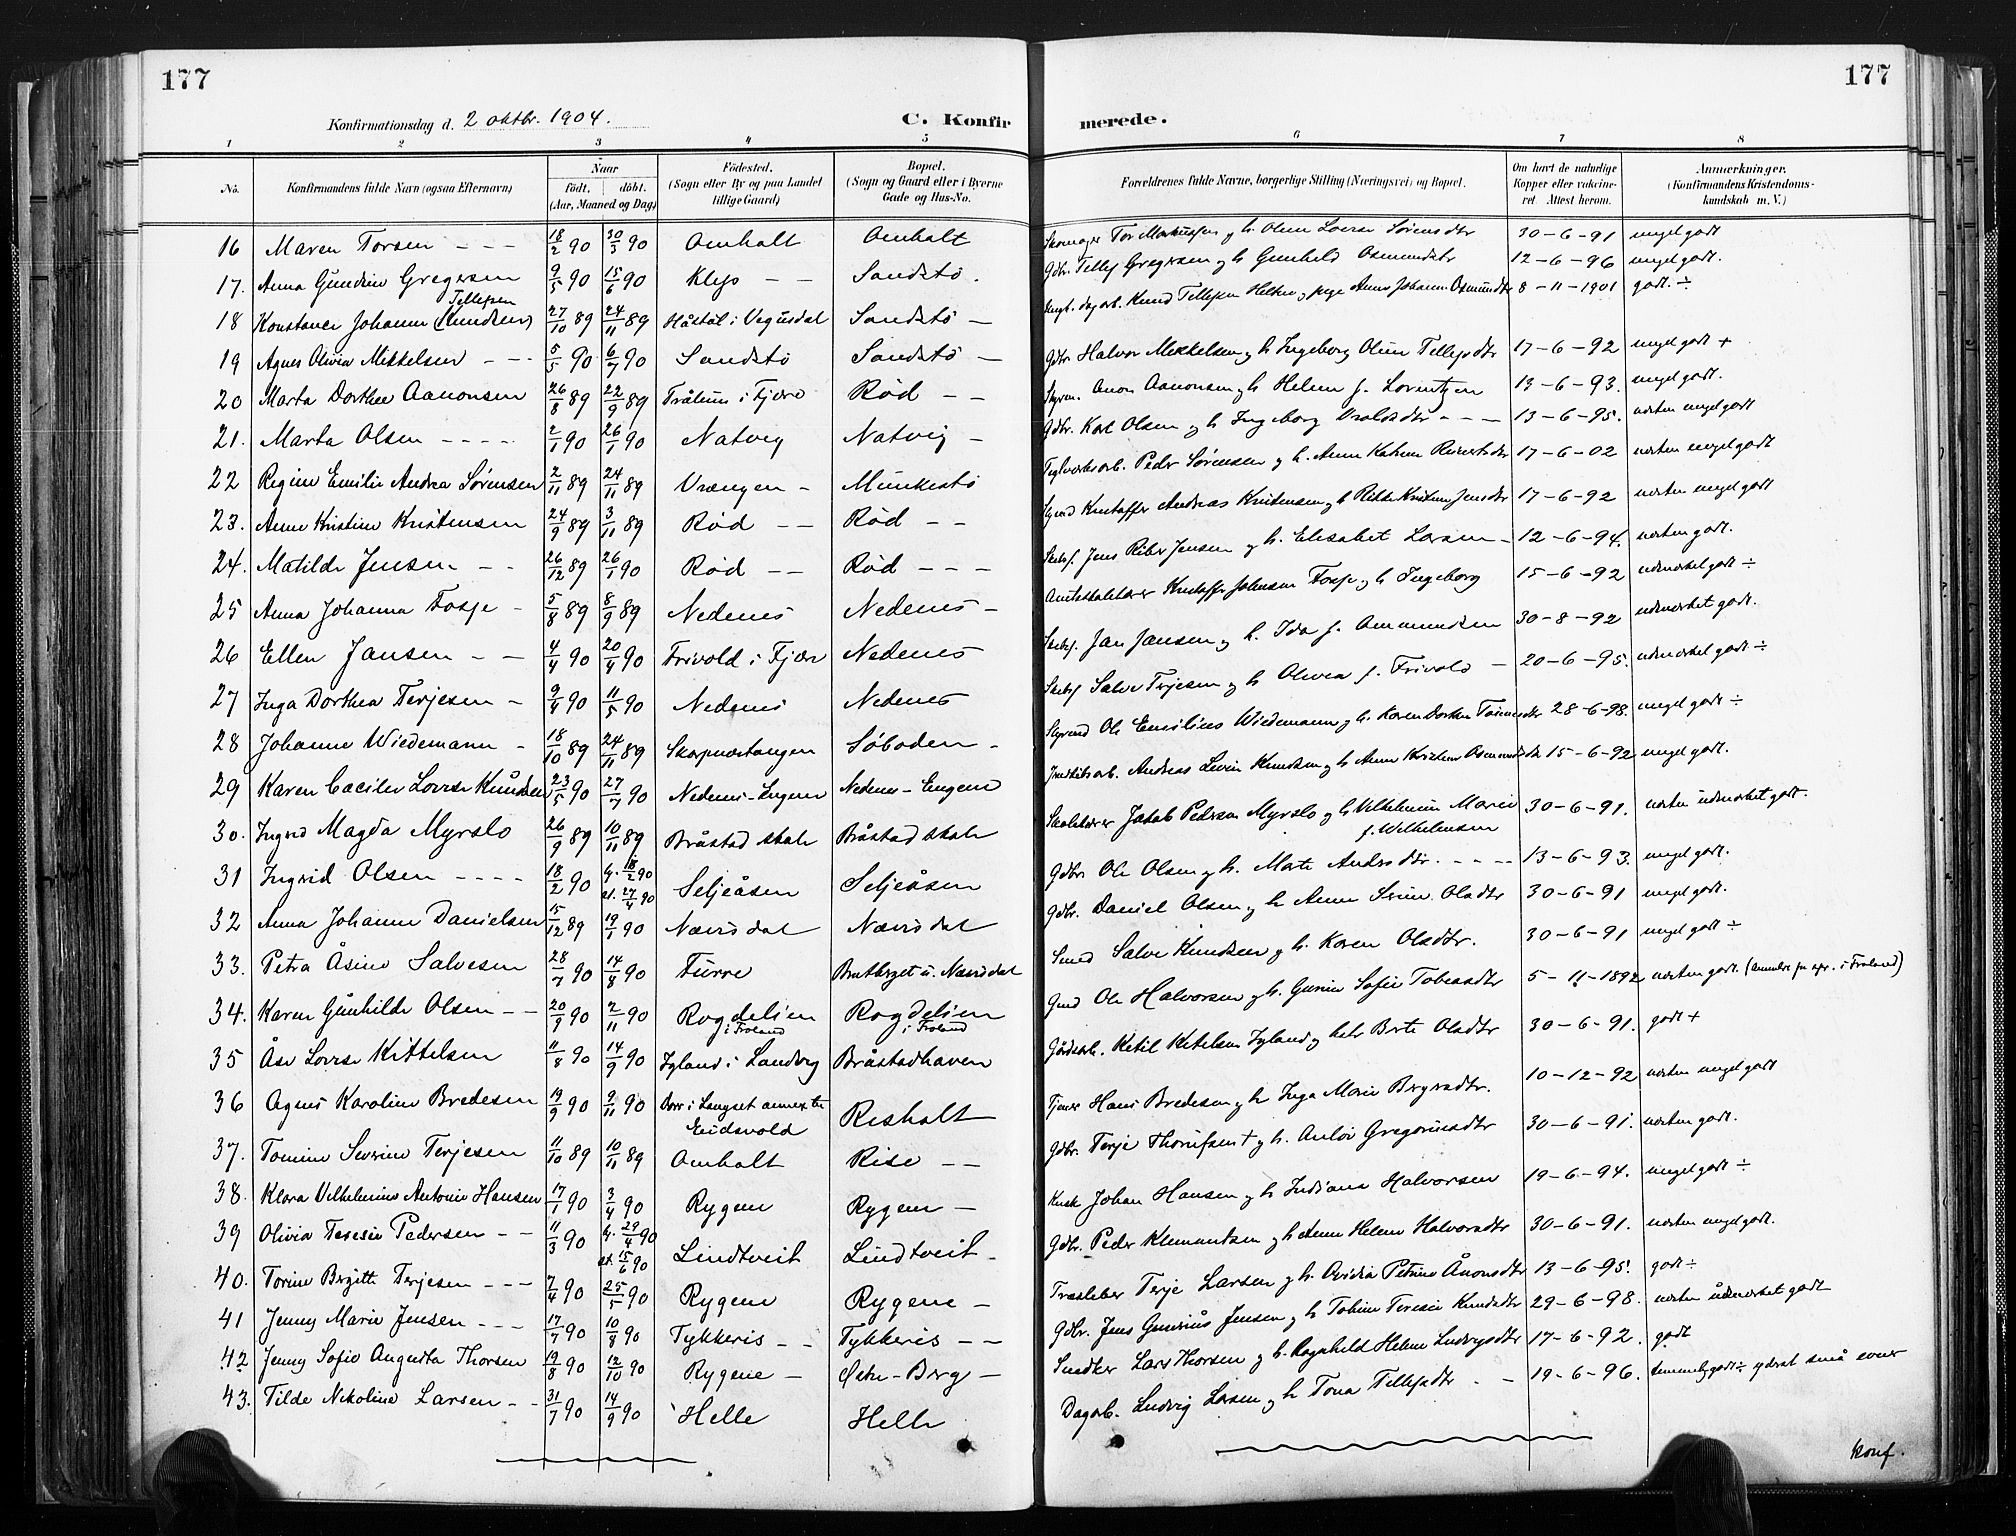 177
177
Konfirmationsdag d. 2 oktbr. 1904.
C. Konfir
merede.
1 2 3 4 5 6 7 8
No.
Konfirmandens fulde Navn (ogsaa Efternavn)
Naar
født. døbt.
(Aar, Maaned og Dag)
Födested.
(Sogn eller By og paa Landet
tillige Gaard)
Bopæl.
(Sogn og Gaard eller i Byerne
Gade og Hus-No.
Forældrenes fulde Navne, borgerlige Stilling (Næringsvei) og Bopæl.
Om havt de naturlige
Kopper eller vakcine-
ret. Attest herom.
Anmærkninger.
(Konfirmandens Kristendoms-
kundskab m. V.)
16 Maren Torsen - - - 18/2 90 30/3 90 Omholt Omholt 30-6-91 meget godt
17. Anna Gundine Gregersen 9/5 90 15/6 90 Klep - - Sandstø. Gdbr. Tellef Gregersen og h. Gunhild Osmundsdtr 12-6-96 meget godt.
18 Konstance Johanne (Knudsen) Tellefsen 27/10 89 24/11 89 Håstøl i Vegusdal Sandstø - 8-11-1901 godt. ÷
19 Agnes Olivia Mikkelsen - - - 5/5 90 6/7 90 Sandstø Sandstø - Gdbr. Halvor Mikkelsen og h. Ingeborg Oline Tellefsdtr 17-6-92 meget godt +
20 Marta Dorthea Aanonsen 26/8 89 22/9 89 i Fjære Rød - - Anon Aanonsen og h. Helene f. Lorentzen 13-6-93. meget godt.
21. Marta Olsen - - - - 2/1 90 26/1 90 Natvig Natvig - Gdbr. Karl Olsen og h. Ingeborg - - - 13-6-95. næsten meget godt
22 Regine Emilie Andrea Sørensen 2/11 89 24/11 89 Vrængen - Munkestø Teglverksarb. Peder Sørensen og h. Anne Katrine 17-6-02 næsten meget godt
23. Anne Kristine Kristensen 24/9 89 3/11 89 Rød - - Rød - - Andreas Kristensen og h. Kristine Jensdtr 17-6-92 næsten meget godt
24. Matilde Jensen - - 26/12 89 26/1 90 Rød - - Rød - - - Skibsf. Jens Riber Jensen og h. Elisabet Larsen - 12-6-94. næsten godt.
25 Anna Johanna Fosse - 5/8 89 8/9 89 Nedenes Nedenes - Johnsen Fosse og h. Ingeborg 15-6-92 udmerket godt ÷
26 Ellen Jansen - - 4/4 90 20/4 90 Frivold i Fjære Nedenes Skibsf. Jan Jansen og h. Ida f. Ommundsen 30-8-92 udmerket godt.
27 Inga Dorthea Terjesen - 9/4 90 11/5 90 Nedenes Nedenes Skibsf Salve Terjesen og h. Olivia f. Frivold - 20-6-95. udmerket godt ÷
28 Johanne Wiedemann - 18/10 89 24/11 89 Skarpnestangen Søboden - Styrmd Ole Emilius Wiedemann og h. Karen Dorthea 28-6-98. meget godt ÷
29 Karen Cæcilie Lovise Knudsen 23/5 90 27/7 90 Nedenes-Engene Nedenes-Engene Andreas Knudsen og h. Anne Kristine 15-6-92 meget godt.
30. Ingrid Magda Myrslo 26/9 89 10/11 89 Bråstad skole Bråstad skole Skolelærer Jakob Pederson Myrslo og h. Vilhelmine Marie 30-6-91. næsten udmerket godt.
f. Wilhelmsen
31 Ingrid Olsen - - - - 18/2 90 18/2 90 27/4 90 Seljeåsen Seljeåsen Gdbr. Ole Olsen og h. Marte Andersdtr. - - - 13-6-93. meget godt.
32 Anna Johanne Danielsen 15/12 89 19/1 90 Nævisdal Nævisdal Gdbr. Daniel Olsen og h. Anne Oladtr 30-6-91 meget godt.
33. Petra Åsine Salvesen 28/7 90 14/8 90 Furre Bratberget u. Nævisdal Smed Salve Knudsen og h. Karen Olsdtr. 30-6-91 meget godt ÷
34. Karen Gunhilde Olsen - - 20/9 90 2/11 90 Rogdelien i Froland Rogdelien i Froland Gmd Ole Halvorsen og h. Gurine Sofie Tobiasdtr 5-11-1892 næsten godt.
35 Åse Lovise Kittelsen 11/8 90 14/9 90 Igland i Landvig Bråstadhaven Gårdarb. Ketil Ketelsen Igland og h. Berte Olsdtr 30-6-91. godt +
36 Agnes Karoline Bredesen 19/9 90 9/11 90 i Langset annex til Eidsvold Risholt Tjener Hans Bredesen og h. Inga Marie 10-12-92 næsten meget godt
37. Tomine Severine Terjesen 11/10 89 10/11 89 Omholt Rise - - Gdbr. Terje † og h. Gregoriusdtr 30-6-91. næsten godt.
38. Klara Vilhelmine Antonie Hansen 17/1 90 3/4 90 Rygene Rygene - Kusk Johan Hansen og h. Indiana Halvorsen 19-6-94. meget godt ÷
39 Olivia Teresie Pedersen - - 11/3 90 29/4 90 15/6 90 Lindtveit Lindtveit - Gdbr. Peder Klemmetsen og h. Anne Helene Halvorsdtr 30-6-91. næsten meget godt.
40. Torine Birgitte Terjesen - - - 7/4 90 25/5 90 Rygene Rygene - Træsliber Terje Larsen og h. Ovidia Petrine Ånonsdtr 13-6-95. godt ÷
41 Jenny Marie Jensen - - - 17/7 90 10/8 90 Tykkeris - - Tykkeris - - Gdbr. Jens Jensen og h. Tobine Teresie Knudsdtr 29-6-98. næsten udmerket godt
42 Jenny Sofie Augusta Thorsen 19/8 90 12/10 90 Rygene - -Berg - Snedker Lars Thorsen og h. Ragnhild Helene Ludvigsdtr 17-6-92. godt
43. Tilde Nikoline Larsen - - 31/7 90 14/9 90 Helle Helle Dagarb. Ludvig Larsen og h. Tona Tellefsdtr - - 19-6-96. temmelig godt ÷ yderst små evner
konf.